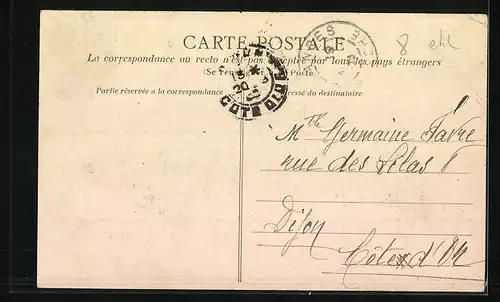 CARTE POSTALE
La correspondance au recto n'est pas acceptée par tous les pays étrangers
(Se renseigner Poste)
Partie réservée a la correspondance
Adresse du destinataire
8
COTE D'OR
20
Mlle Germaine Favre
rue des Lilas
Dijon
Côte d'Or